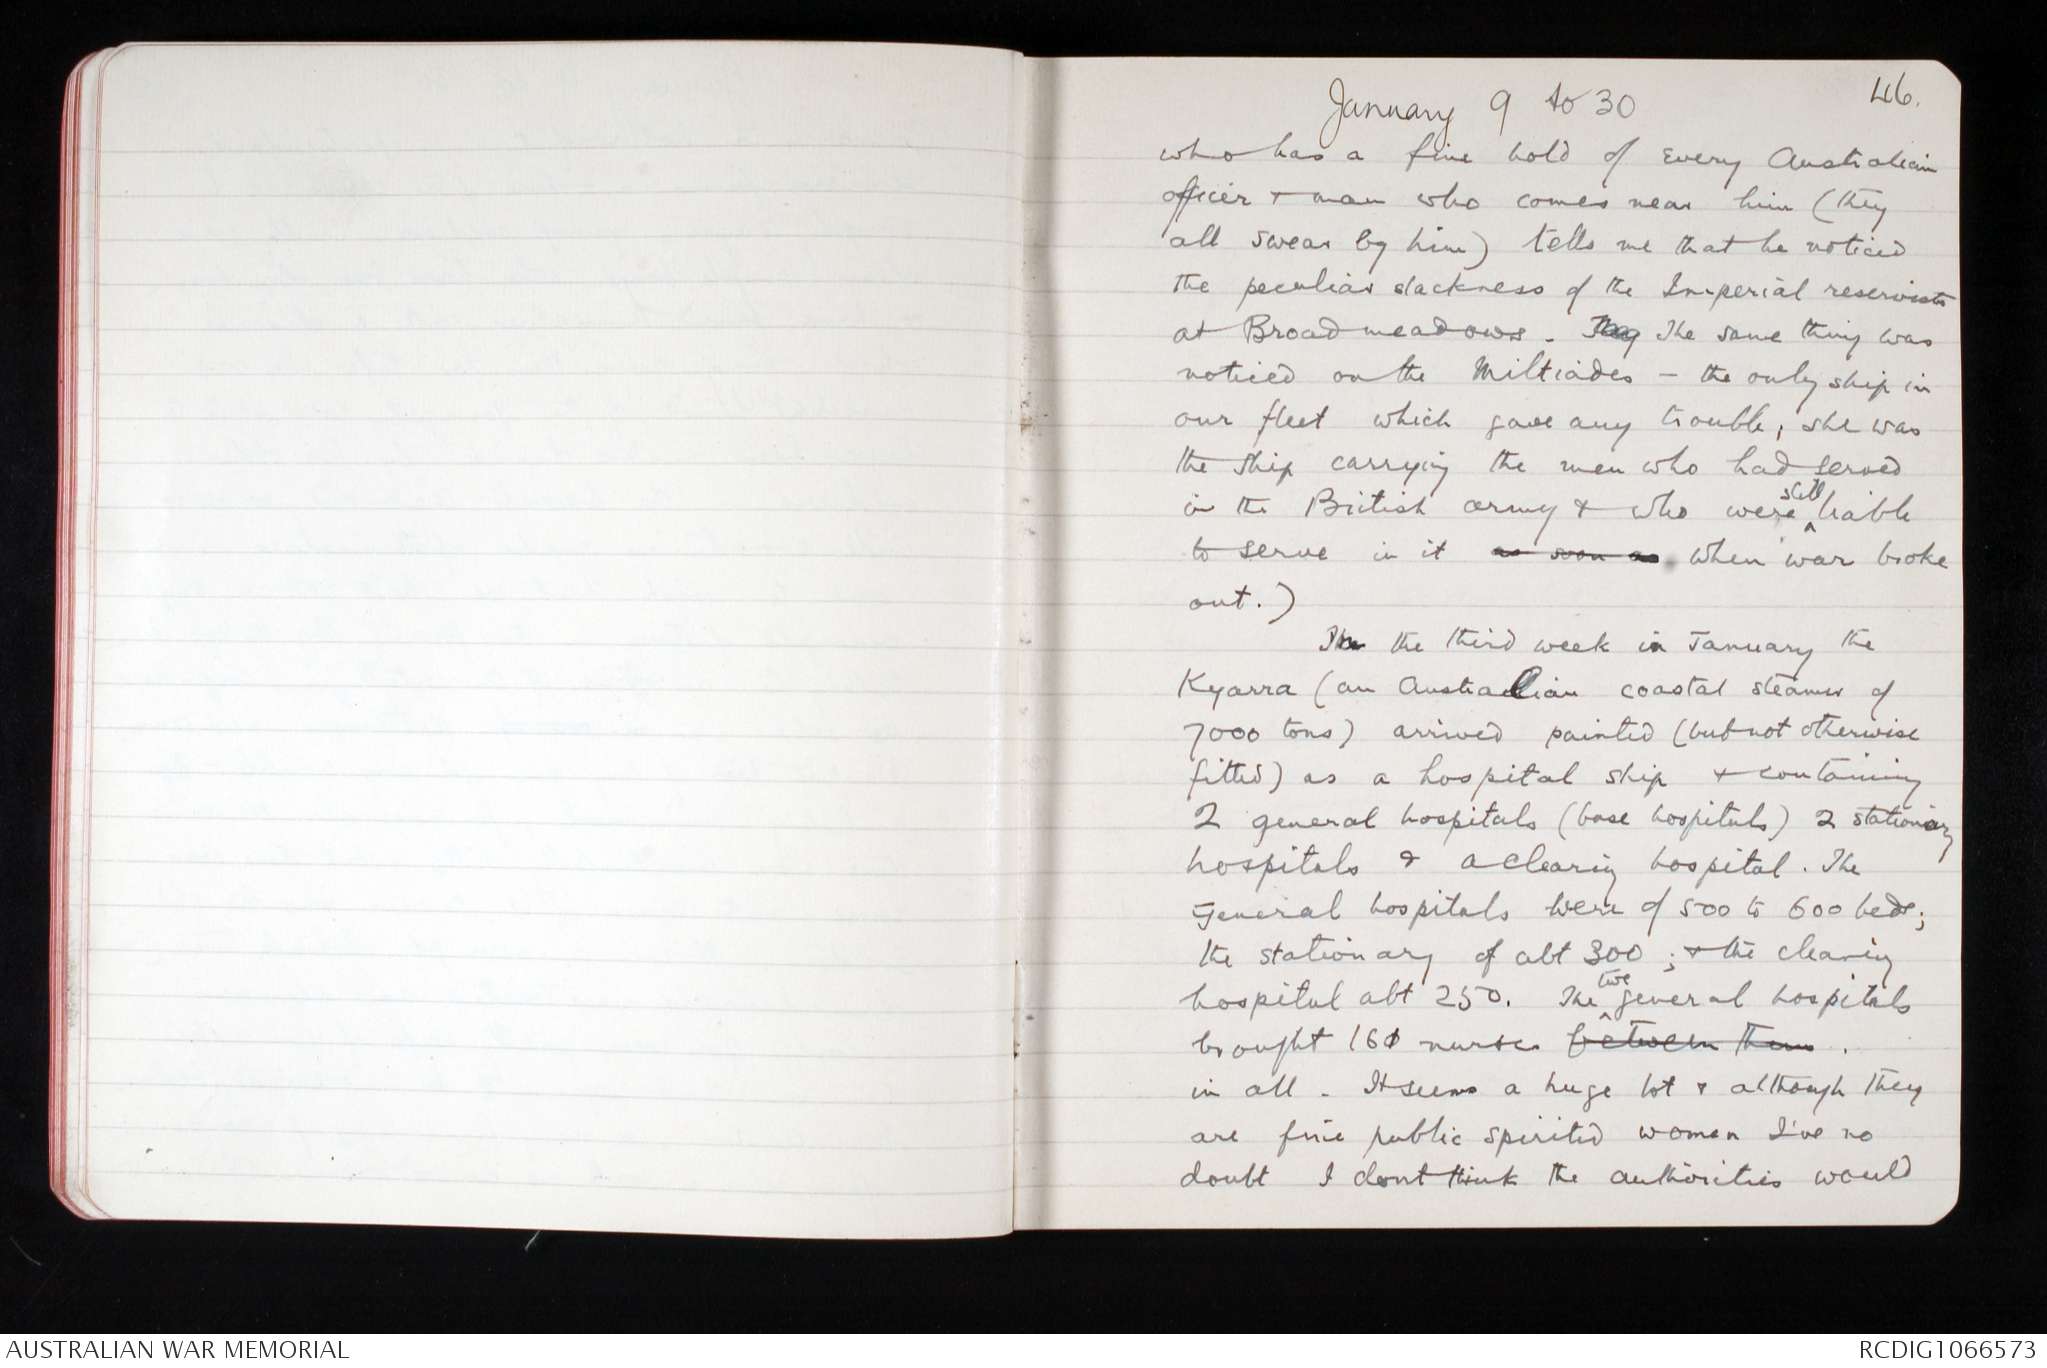 January 9 to 30
46.
who has a fine hold of every Australian
officer & man who comes near him (they
all swear by him) tells me that he noticed
the peculiar slackness of the Imperial reservists
at Broadmeadows. They The same thing was
noticed on the Miltiades - the only ship in
our fleet which gave any trouble; she was
the ship carrying the men who had served
still
in the British army & who were ^ liable
to serve in it as soon as when war broke
out.)
In the third week in January the
Kyarra (an Australian coastal steamer of
7000 tons) arrived painted (but not otherwise
fitted) as a hospital ship & containing
2 general hospitals (base hospitals) 2 stationary
hospitals & a clearing hospital. The
general hospitals were of 500 to 600 beds;
the stationary of abt 300; & the clearing
two
hospital abt 250. The ^ general hospitals
brought 161 nurses between them.
in all. It seems a huge lot & although they
are fine public spirited women I've no
doubt I dont think the authorities would
AUSTRALIAN WAR MEMORIAL
RCDIG1066573